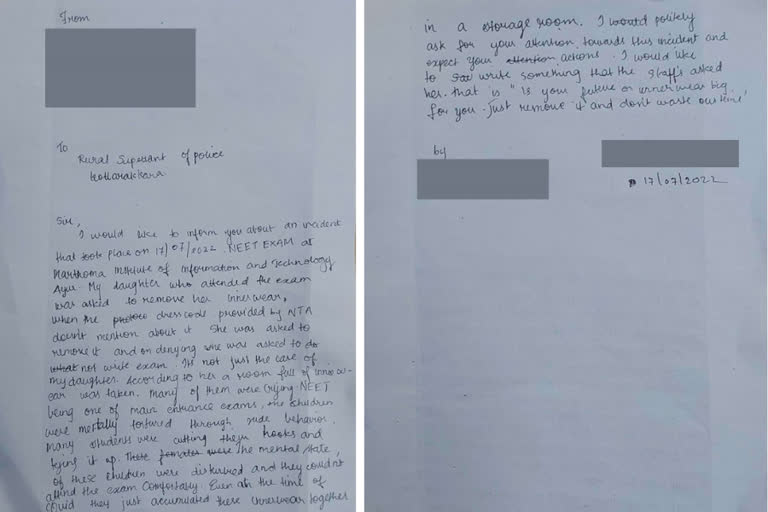 From
To
Rural Supetiant of police
kottarakkara
Sir,
I would like to inform you about an incident
that took place on 17/07/2022. NEET EXAM at
Marthoma Institute of Information and Technology
Ayur. My daughter who attended the exam
was asked to remove her innerwear,
when the dresscode provided by NTA
doesn't mention about it. She was asked to
remove it and on denying she was asked to
not write exam. It's not just the case of
my daughter. According to her a room full of innerw-
ear was taken. Many of them were crying. NEET
being one of main entrance exams, the children
were mentally tortured through rude behavior.
Many students were cutting them hooks and
tying it up. These the mental state,
of these children were disturbed and they couldn't
attend the exam comfortably. Even at the time of
covid they just accumulated these innerwear together
in a storage room. I would politely
ask for your attention towards this incident and
expect your attention actions. I would like
to write something that the staffs asked
her. that is "Is your future or innerwear big
for you. Just remove it and don't waste our time'
by
17/07/2022